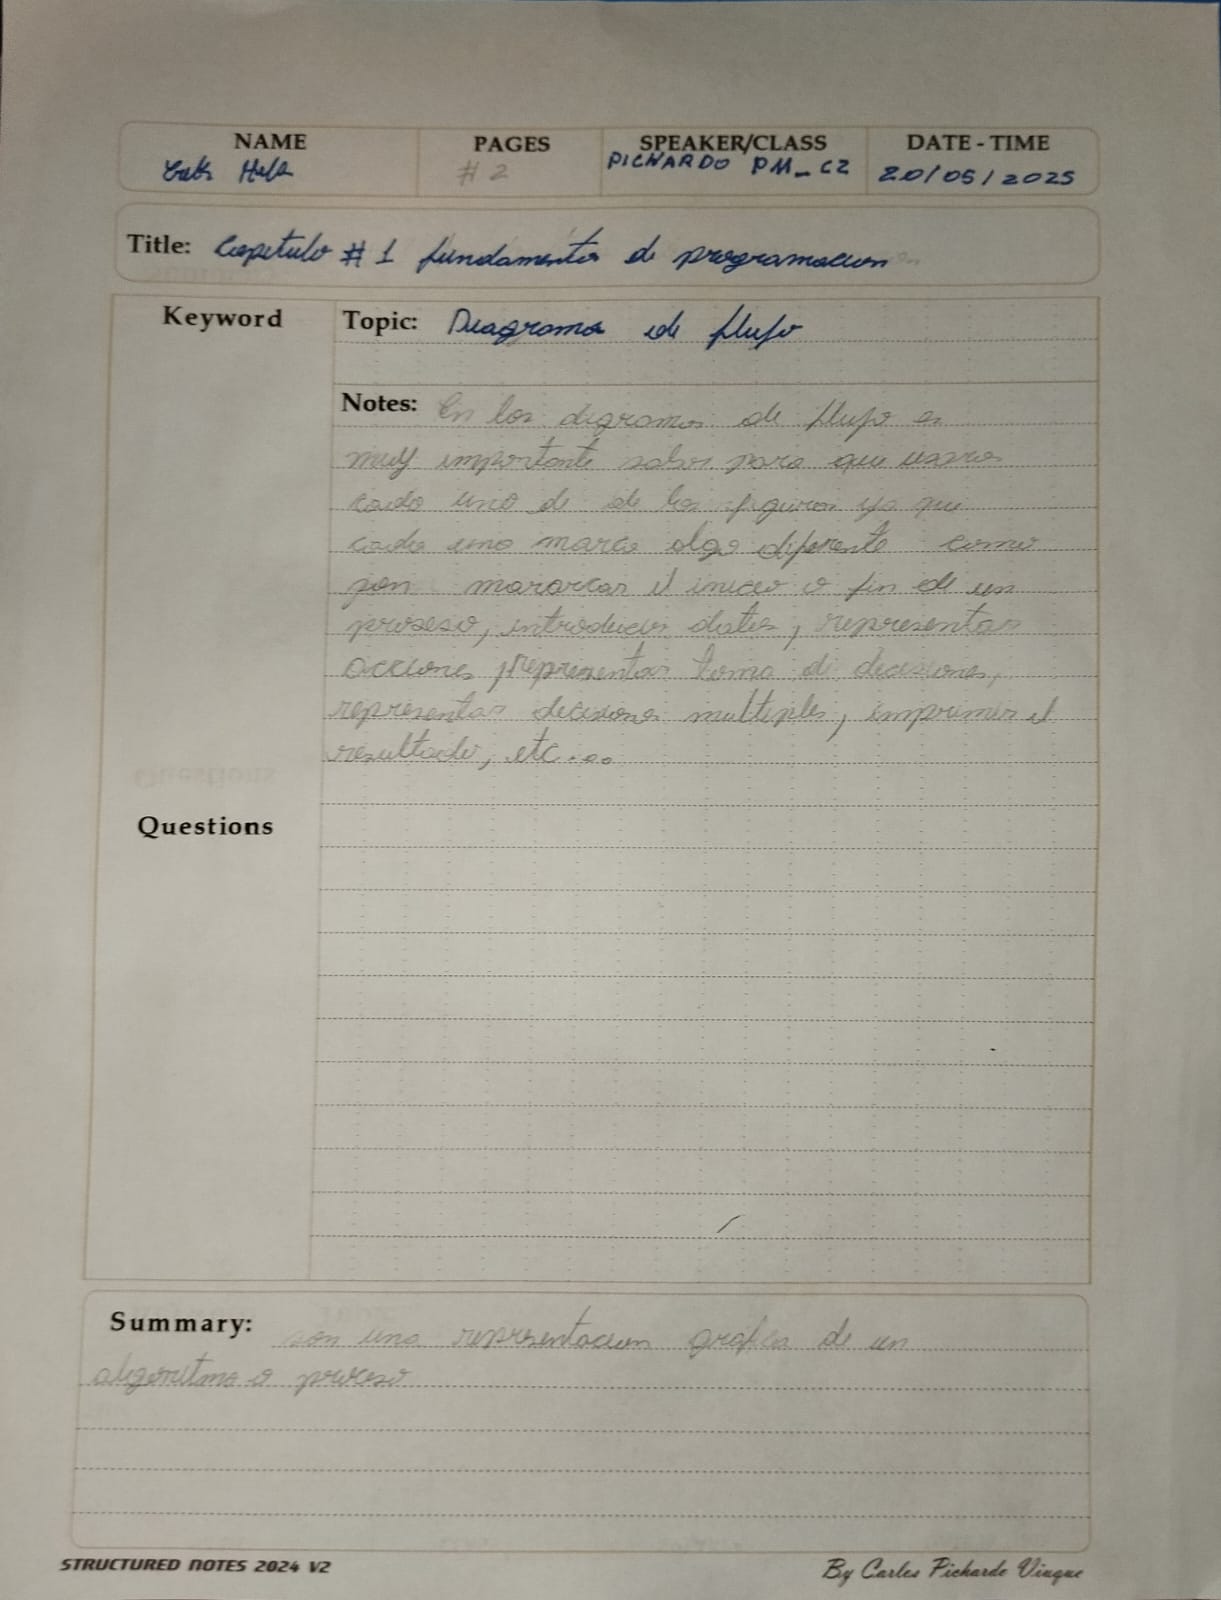 NAME PAGES SPEAKER/CLASS DATE - TIME
# 2 PICHARDO PM_CZ 20/05/2025
Title: Capitulo # 1 fundamento de programacion
Keyword Topic: Diagrama de flujo
Notes: En los digramas de flujo es
muy importante saber para que
cada uno de de las figuras ya que
cada uno marca algo diferente como
son mararcar el inicio o fin de un
proseso, introducir datos, representar
acciones, representar toma de decisiones,
representar decisiones multiples, imprimir el
resultado, etc...
Questions
Summary: son una representacion grafica de un
algoritmo o proceso
STRUCTURED NOTES 2024 V2 By Carlos Pichardo Viuque